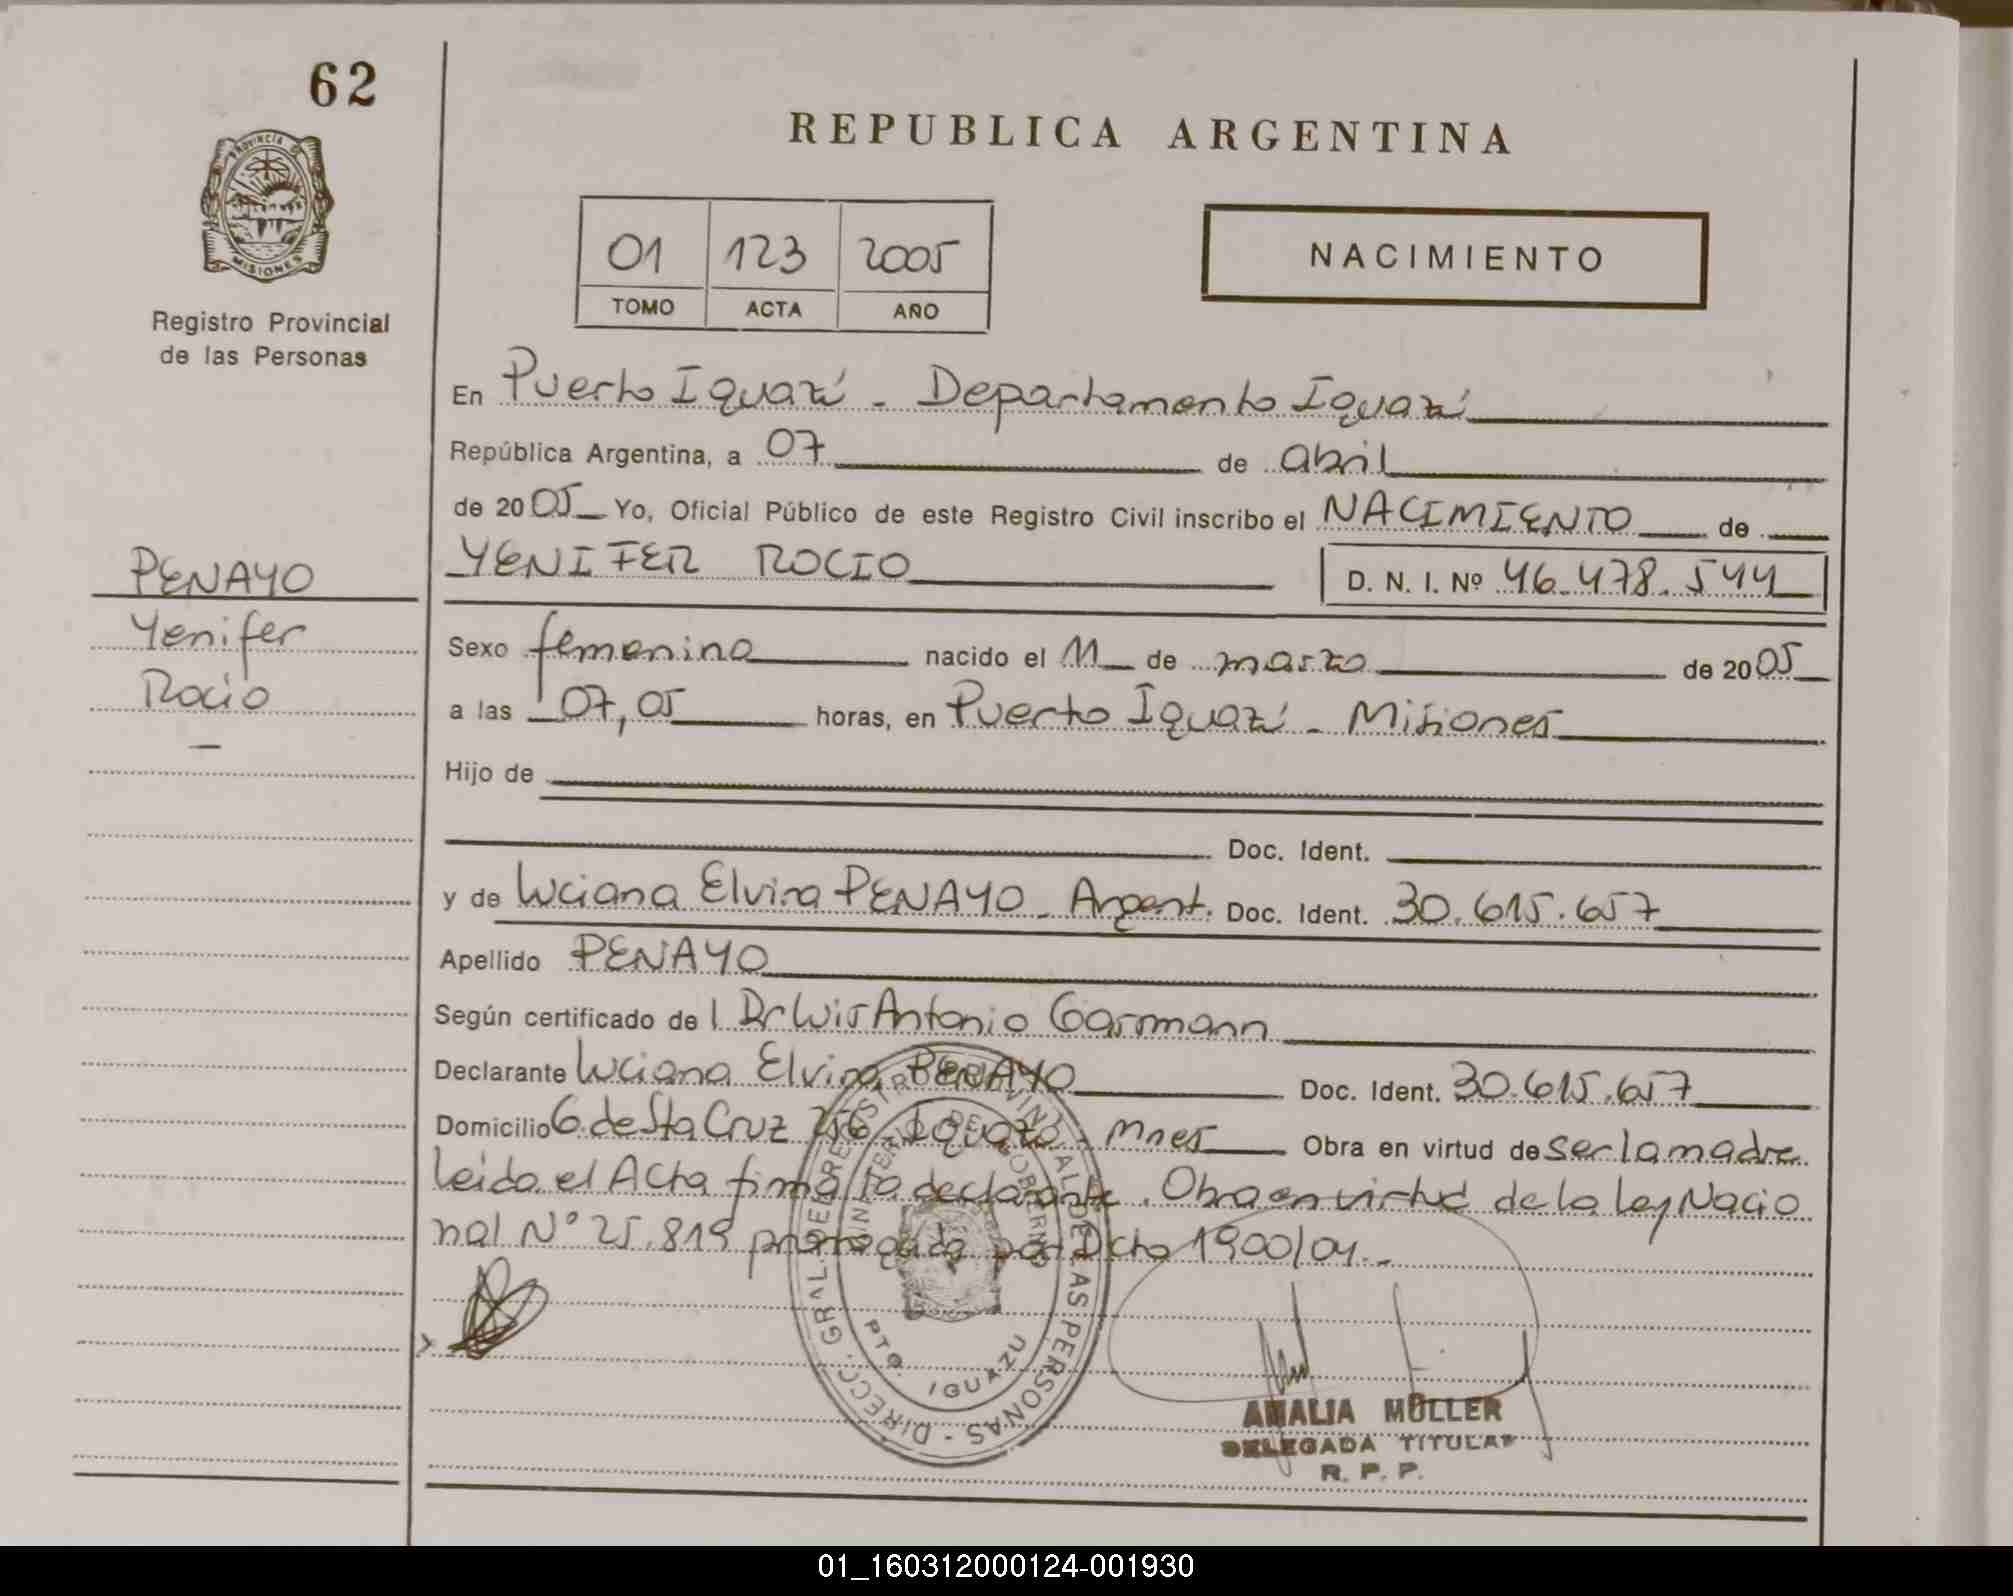 62
REPUBLICA ARGENTINA
PROVINCIA DE
MISIONES
Registro Provincial
de las Personas
01 123 2005
TOMO ACTA AÑO
NACIMIENTO
En Puerto Iguazú - Departamento Iguazú
República Argentina, a 07 de abril
de 2005 Yo, Oficial Público de este Registro Civil inscribo el NACIMIENTO de
YENIFER ROCIO D. N. I. Nº 46.478.544
PENAYO
Yenifer
Rocio
-
Sexo femenino nacido el 11 de marzo de 2005
a las 07,05 horas, en Puerto Iguazú - Misiones
Hijo de
Doc. Ident.
y de Luciana Elvira PENAYO - Argent. Doc. Ident. 30.615.657
Apellido PENAYO
Según certificado de l Dr Luis Antonio Garmann
Declarante Luciana Elvira PENAYO Doc. Ident. 30.615.657
Domicilio G. de Sta Cruz 256 - Iguazú - Mnes Obra en virtud de ser la madre
leida el Acta firma la declarante. Obra en virtud de la Ley Nacio
nal N° 25.819 prorrogada por Dcto 1900/04.-
DIRECC. GRAL. DEL REGISTRO PROVINCIAL DE LAS PERSONAS -
MINISTERIO DE GOBIERNO
PTO. IGUAZU
AMALIA MÜLLER
DELEGADA TITULAR
R. P. P.
01_160312000124-001930